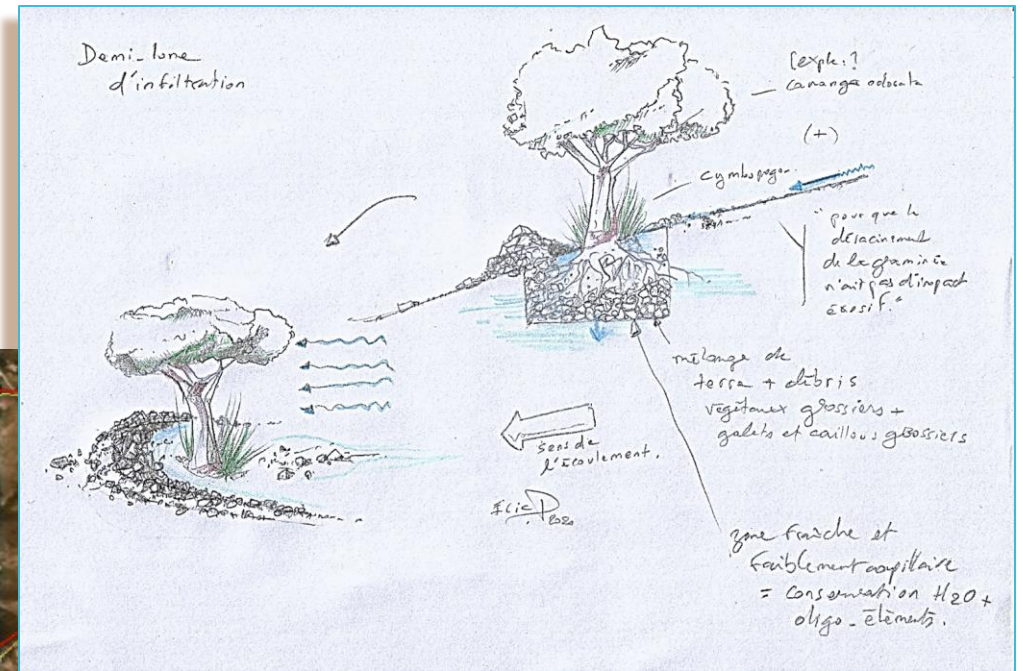 Demi-lune
d'infiltration
[exple:]
cananga odorata
(+)
cymbopogon
"pour que le
déracinement
de la graminée
n'ait pas d'impact
érosif."
mélange de
terre + débris
végétaux grossiers +
galets et cailloux grossiers
sens de
l'écoulement.
2020
zone fraîche et
faiblement capillaire
= conservation H2O +
oligo-éléments.